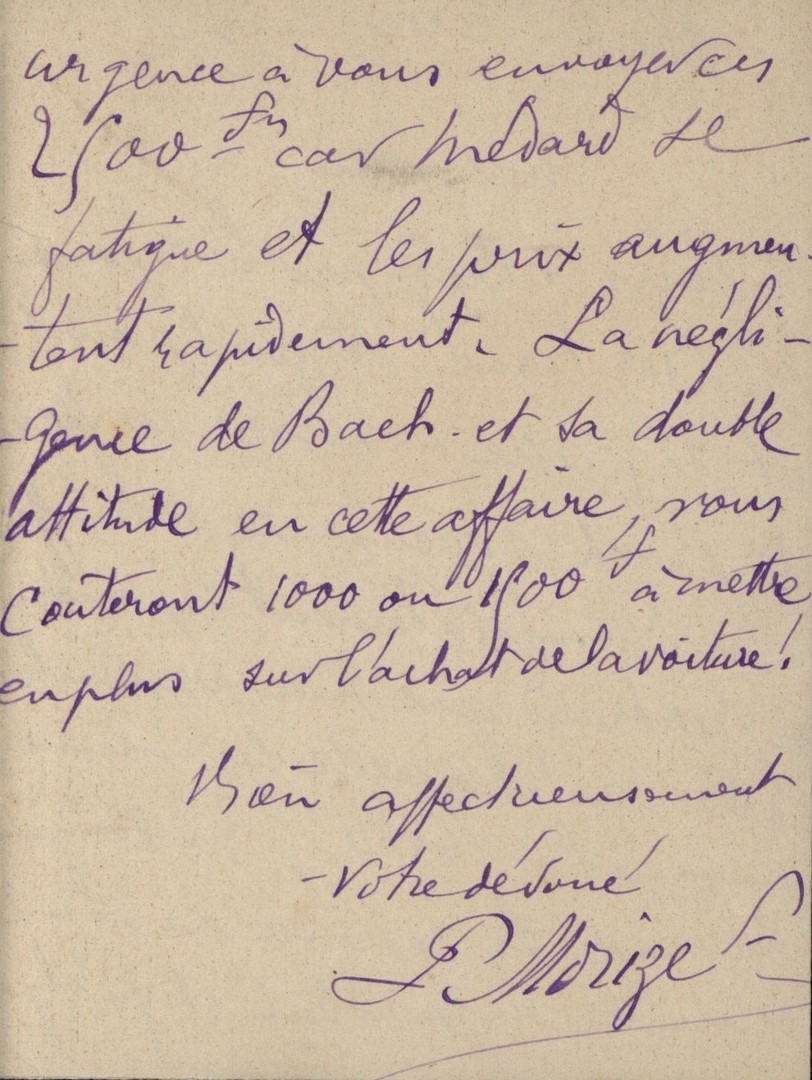 urgence à vous envoyer ces
2500 frs car Médard se
fatigue et les prix augmen-
-tent rapidement. La négli-
-gence de Bach. et sa double
attitude en cette affaire, vous
Couteront 1000 ou 1500 f à mettre
en plus sur l'achat de la voiture!
Bien affectueusement
-Votre dévoué
P Morize